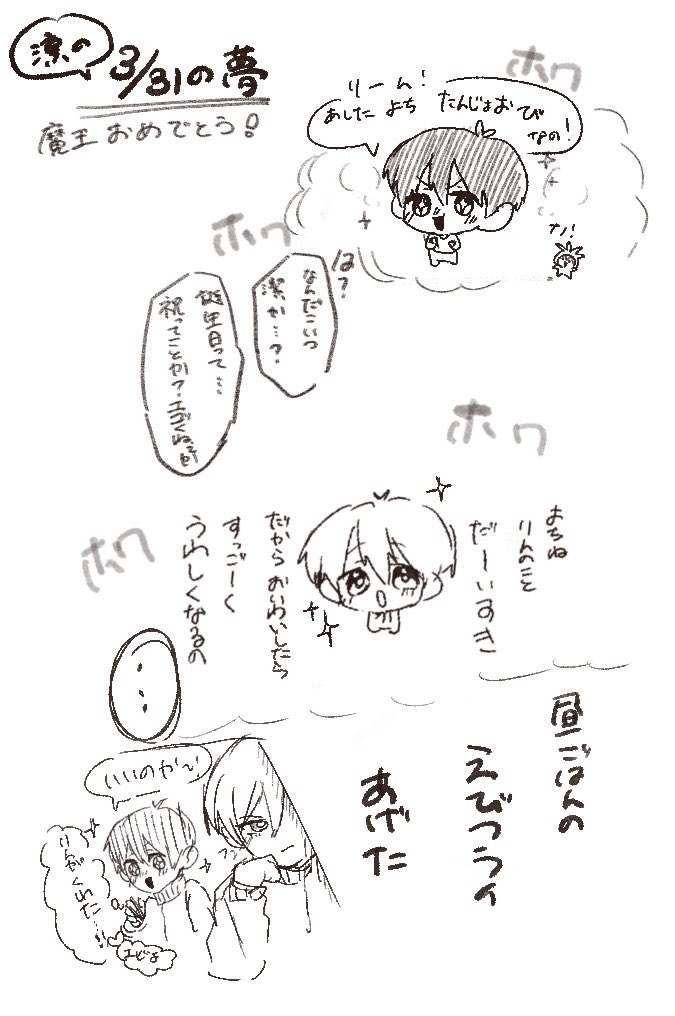 凛の
3/31の夢
魔王おめでとう!
ホワ
りーん!
あした よち たんじょおび
なの!
ナノ!
ホワ
は?
なんだこいつ
潔か…?
誕生日って…
祝ってことか?
ホワ
よちね
りんのこと
だーいすき
だから おいわいしたら
すっごーく
うれしくなるの
ホワ
昼ごはんの
えびフライ
あげた
いいのか〜!
りんがくれた…!!
エビだよ